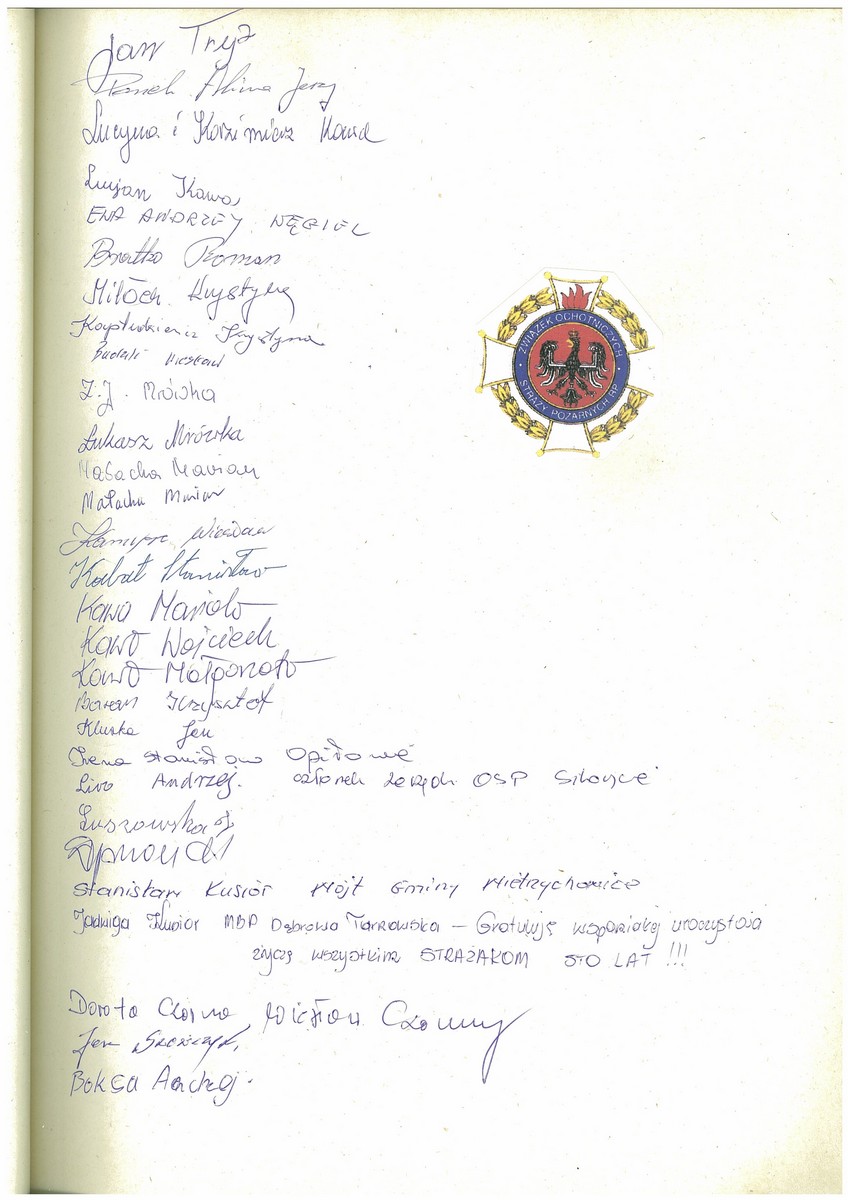 Jan Tryz
Alina Jerzy
Lucyna i Kazimierz Kawa
Lucjan Kawa
EWA ANDRZEJ WĘGIEL
Bratko Roman
Miłoch Krystyna
Krystyna
Wiesław
Z.J. Mrówka
Łukasz Mrówka
Małacha Marian
Małacha Marian
Wiesław
Kabat Stanisław
Kawa Mariola
Kawa Wojciech
Kawa Małgorzata
Baran Krzysztof
Kluska Jan
Irena Stanisław Opiłowie
Liro Andrzej. członek zarządu OSP Sikorzyce
Luszowska
Stanisław Kusior Wójt Gminy Wietrzychowice
Jadwiga Kusior MBP Dąbrowa Tarnowska – Gratuluję wspaniałej uroczystości
życzę wszystkim STRAŻAKOM STO LAT !!!
Dorota Czarna Wiesław Czarny
Jan
Boksa Andrzej.
ZWIĄZEK OCHOTNICZYCH
STRAŻY POŻARNYCH RP